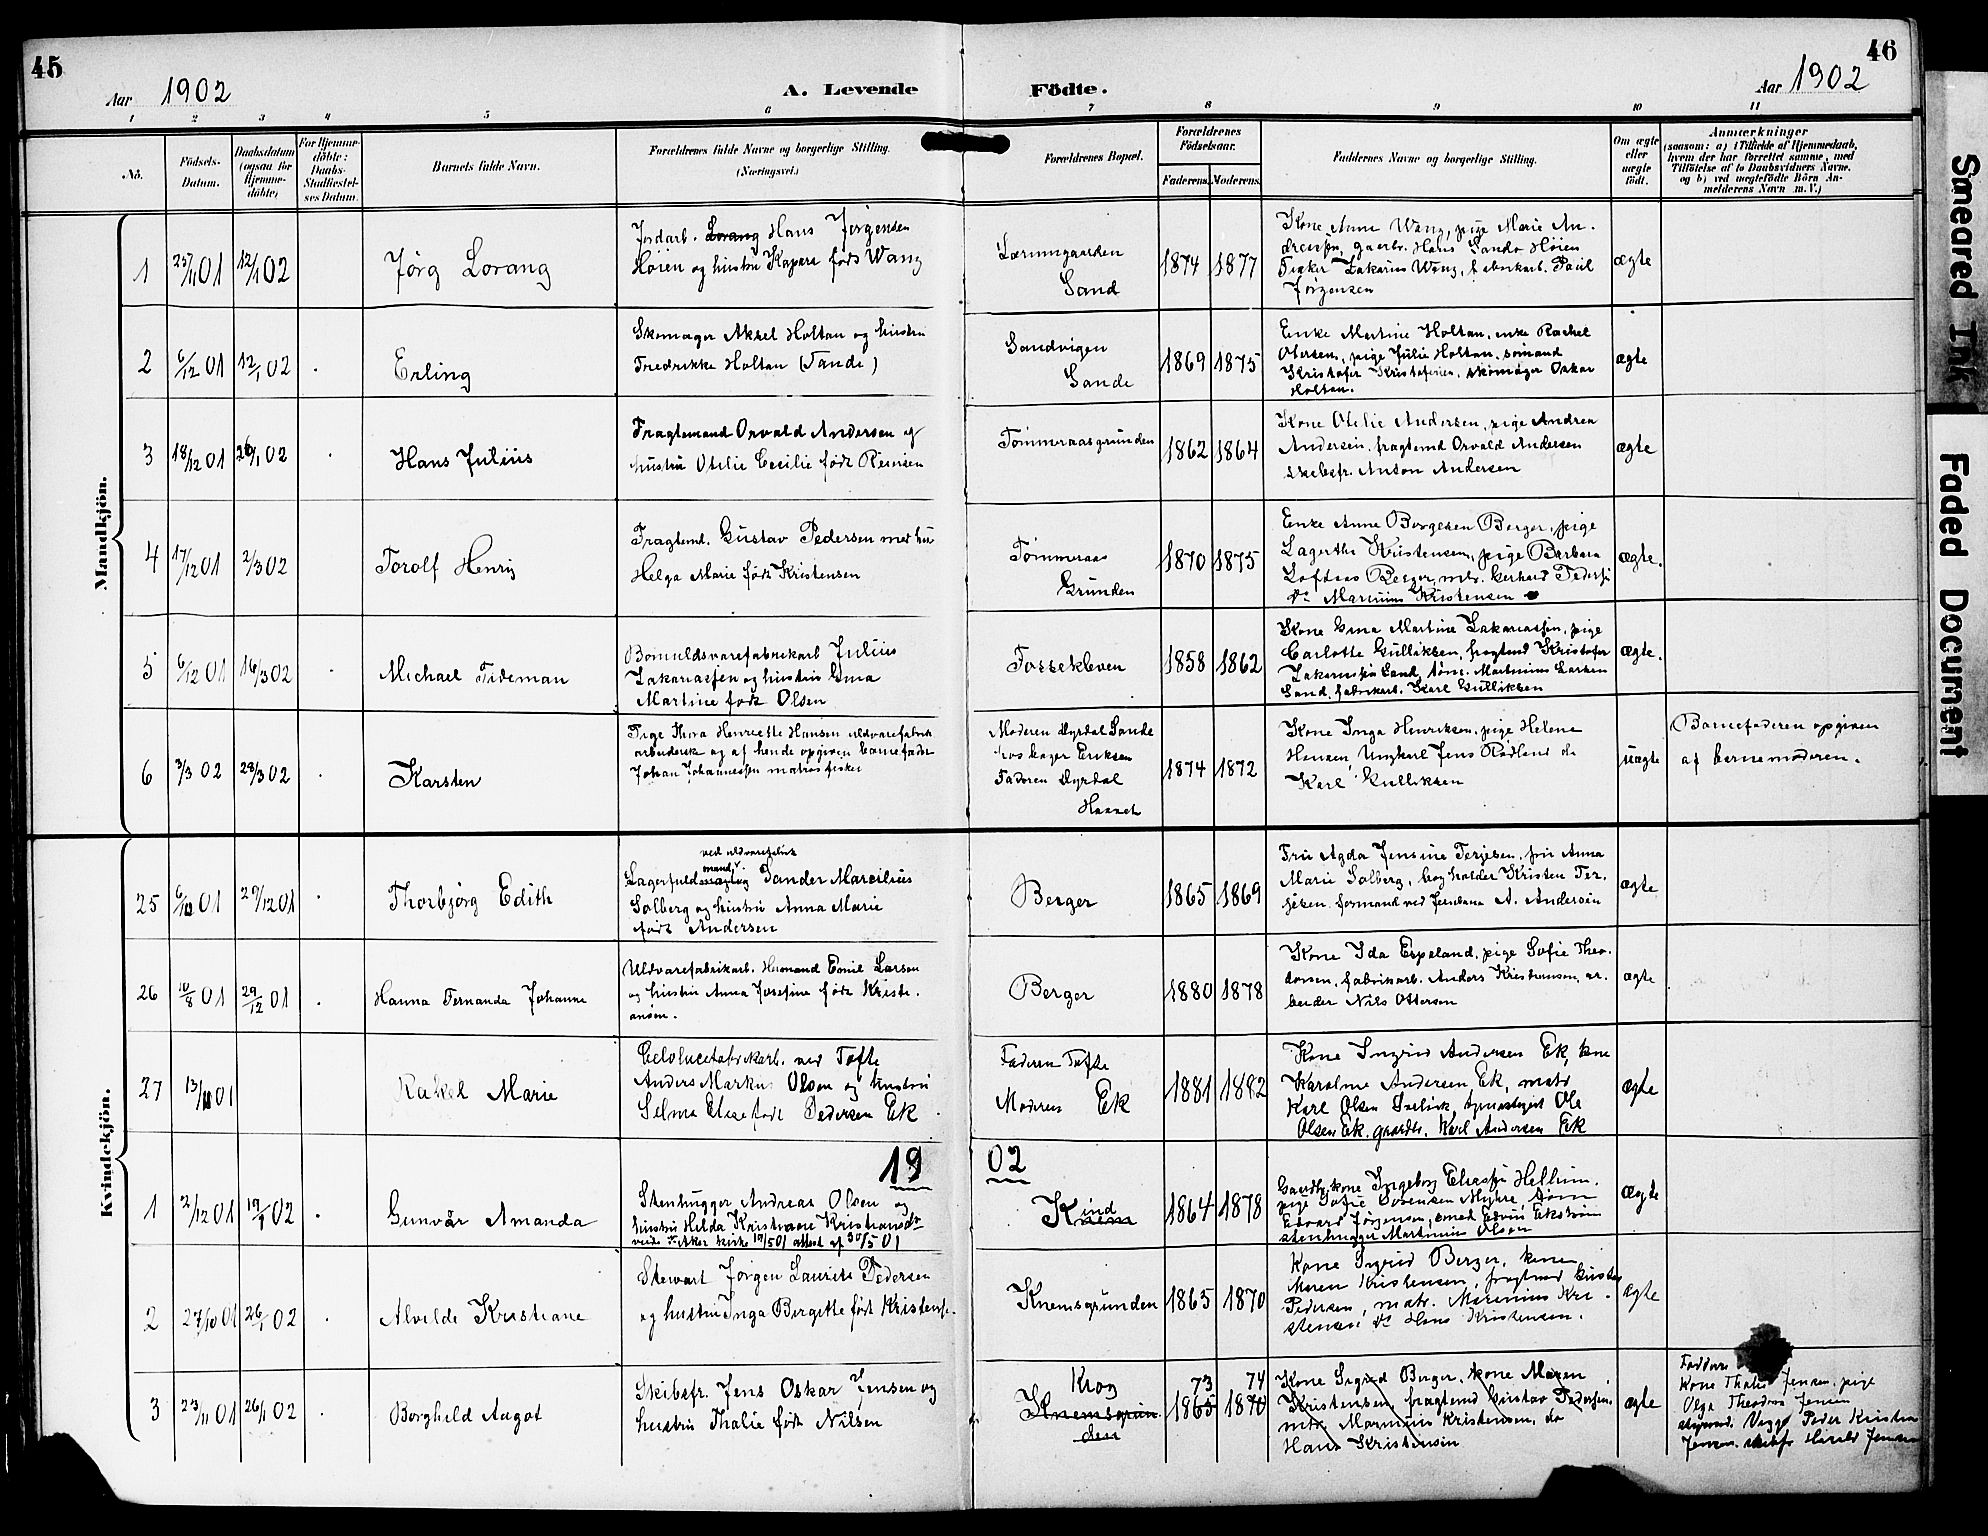 45
46
Aar 1902
A. Levende Födte.
Aar 1902
1 2 3 4 5 6 7 8 9 10 11
Nô.
Födsels-
Datum.
Daabsdatum
(ogsaa for
Hjemme-
döbte)
For Hjemme-
döbte:
Daabs-
Stadfæstel-
ses Datum.
Barnets fulde Navn.
Forældrenes fulde Navne og borgerlige Stilling.
(Næringsvei.)
Forældrenes Bopæl.
Forældrenes
Födselsaar.
Faderens. Moderens.
Faddernes Navne og borgerlige Stilling.
Om ægte
eller
uægte
født.
Anmærkninger
(saasom: a) i Tilfælde af Hjemmedaab,
hvem der har forrettet samme, med
Tilföielse af to Daabsvidners Navne,
og b) ved uægtefödte Börn An-
melderens Navn m. V.)
Mandkjön.
1 25/11 01 12/1 02
Jörg Lorang
Jordarb. Lorang Hans Jörgensen
Höien og hustru Kapara født Wang
Sand
1874 1877
Kone Anne Wang, pige Marie An-
dreasen, gaarbr. Hans Sando Höien
Fisker Zakarias Wang, fabrikarb. Paul
Jörgensen
ægte
2 6/12 01 12/1 02
Erling
Skomager Aksel Holtan og hustru
Fredrikke Holtan (Sande)
Sandvigen
Sande
1869 1875
Enke Martine Holtan, enke Rachel
Olersen, pige Julie Holtan, sømand
Kristofer Kristofersen, skomager Oskar
Holtan.
ægte
3 18/12 01 26/1 02
Hans Julius
Fragtemand Orvald Andersen og
hustru Otelie Cecilie født
Tømmeraasgrunden
1862 1864
Kone Otelie Andersen, pige Andrea
Andersen, fragtemd Orvald Andersen
skibsfr. Anton Andersen
ægte
4 17/12 01 2/3 02
Torolf Henry
Fragtemd. Gustav Pedersen med hu
Helga Marie født Kristensen
Tømmeraas
Grunden
1870 1875
Enke Anne Borgesen Berger, pige
Lagertha Kristensen, pige Barbara
Berger, mtr. Gerhard Peders
do Marinius Kristensen
ægte.
5 6/12 01 16/3 02
Michael Tideman
Bomuldsvarefabrikarb Julius
Zakariassen og hustru Gina
Martine født Olsen
Fossekleven
1858 1862
Kone Gina Martine Zakariassen, pige
Carlotte Gulliksen, fragtmd Kristofer
Zakariassen Sand, tømr. Martinius Larsen
Sand, fabrikarb. Karl Gulliksen
ægte.
6 3/3 02 28/3 02
Karsten
Pige Thora Henriette Hansen uldvarefabrik
arbeiderske og af hende opgiven barnefader
Johan Johannessen matros fisker
Moderen Dyrdal Sande
hos Lager Eriksen
Faderen Dyrdal
1874 1872
Kone Inga Henriksen, pige Helene
Hansen, Ungkarl Jens Rødland do
Karl Gulliksen
uægte
Barnefaderen opgiven
af barnemoderen.
Kvindekjön.
25 6/10 01 27/12 01
Thorbjörg Edith
ved uldvarefabrik
mand
Sander Marcilius
Solberg og hustru Anna Marie
født Andersen
Berger
1865 1869
Fru Agda Jensine Terjesen, fru Anna
Marie Solberg, bogholder Kristen Ter-
jesen, formand ved Jernbana A. Andersen
ægte
26 10/8 01 29/12 01
Hanna Fernanda Johanne
Uldvarefabrikarb. Hermand Emil Larsen
og hustru Anna Josefine født Kristi-
ansen.
Berger
1880 1878
Kone Ida Espeland, pige Sofie Theo-
dorsen, fabrikarb. Anders Kristensen, ar-
beider Nils Ottersen
ægte
27 13/10 01
Rakel Marie
Celulosefabrikarb. ved Tofte
Anders Markus Olsen og hustru
Selma Elise født Pedersen Ek
Faderen Tofte
Moderen Ek
1881 1882
Kone Ingrid Andersen Ek, kone
Karoline Andersen Ek, matr
Karl Olsen Ole
Olsen Ek, gaardbr. Karl Andersen Ek
ægte
1902
1 2/12 01 19/1 02
Gunvår Amanda
Stenhugger Andreas Olsen og
hustru Helda Kristiane Kristiansdtr
viede V. Aker kirke 19/5 01 attest af 30/5 01
Kind
Knem
1864 1878
Gaardbrkone Ingeborg Eliassen Hellum,
pige Sofie Sørensen Myhre, tøm
Edvard Jørgensen, smed Edvin Ekstrøm
stenhugger Martinius Olsen
ægte
2 27/10 01 26/1 02
Alvilde Kristiane
Stewart Jørgen Laurits Pedersen
og hustru Inga Bergitte født Kristense.
Knemsgrunden
1865 1870
Kone Sigrid Berger, kone
Maren Kristensen, fragtmd Gustav
Pedersen, matr. Marinius Kri-
stensen do Hans Kristensen.
ægte
3 23/11 01 26/1 02
Borghild Aagot
Skibsfr. Jens Oskar Jensen og
hustru Thalie født Nilsen
Krog
Knemsgrun
den
73 74
1865 1870
Kone Sigrid Berger, kone Maren
Kristensen, fragtemd Gustav Pedersen,
mtr. Marinius Kristensen, do
Hans Kristensen
ægte
Faddere
Kone Thalie Jensen, pige
Olga Theodora Jensen
styrmd. Viggo Peder Kristia
Jensen, skibsfr Harald Jensen
Smeared Ink
Faded Document